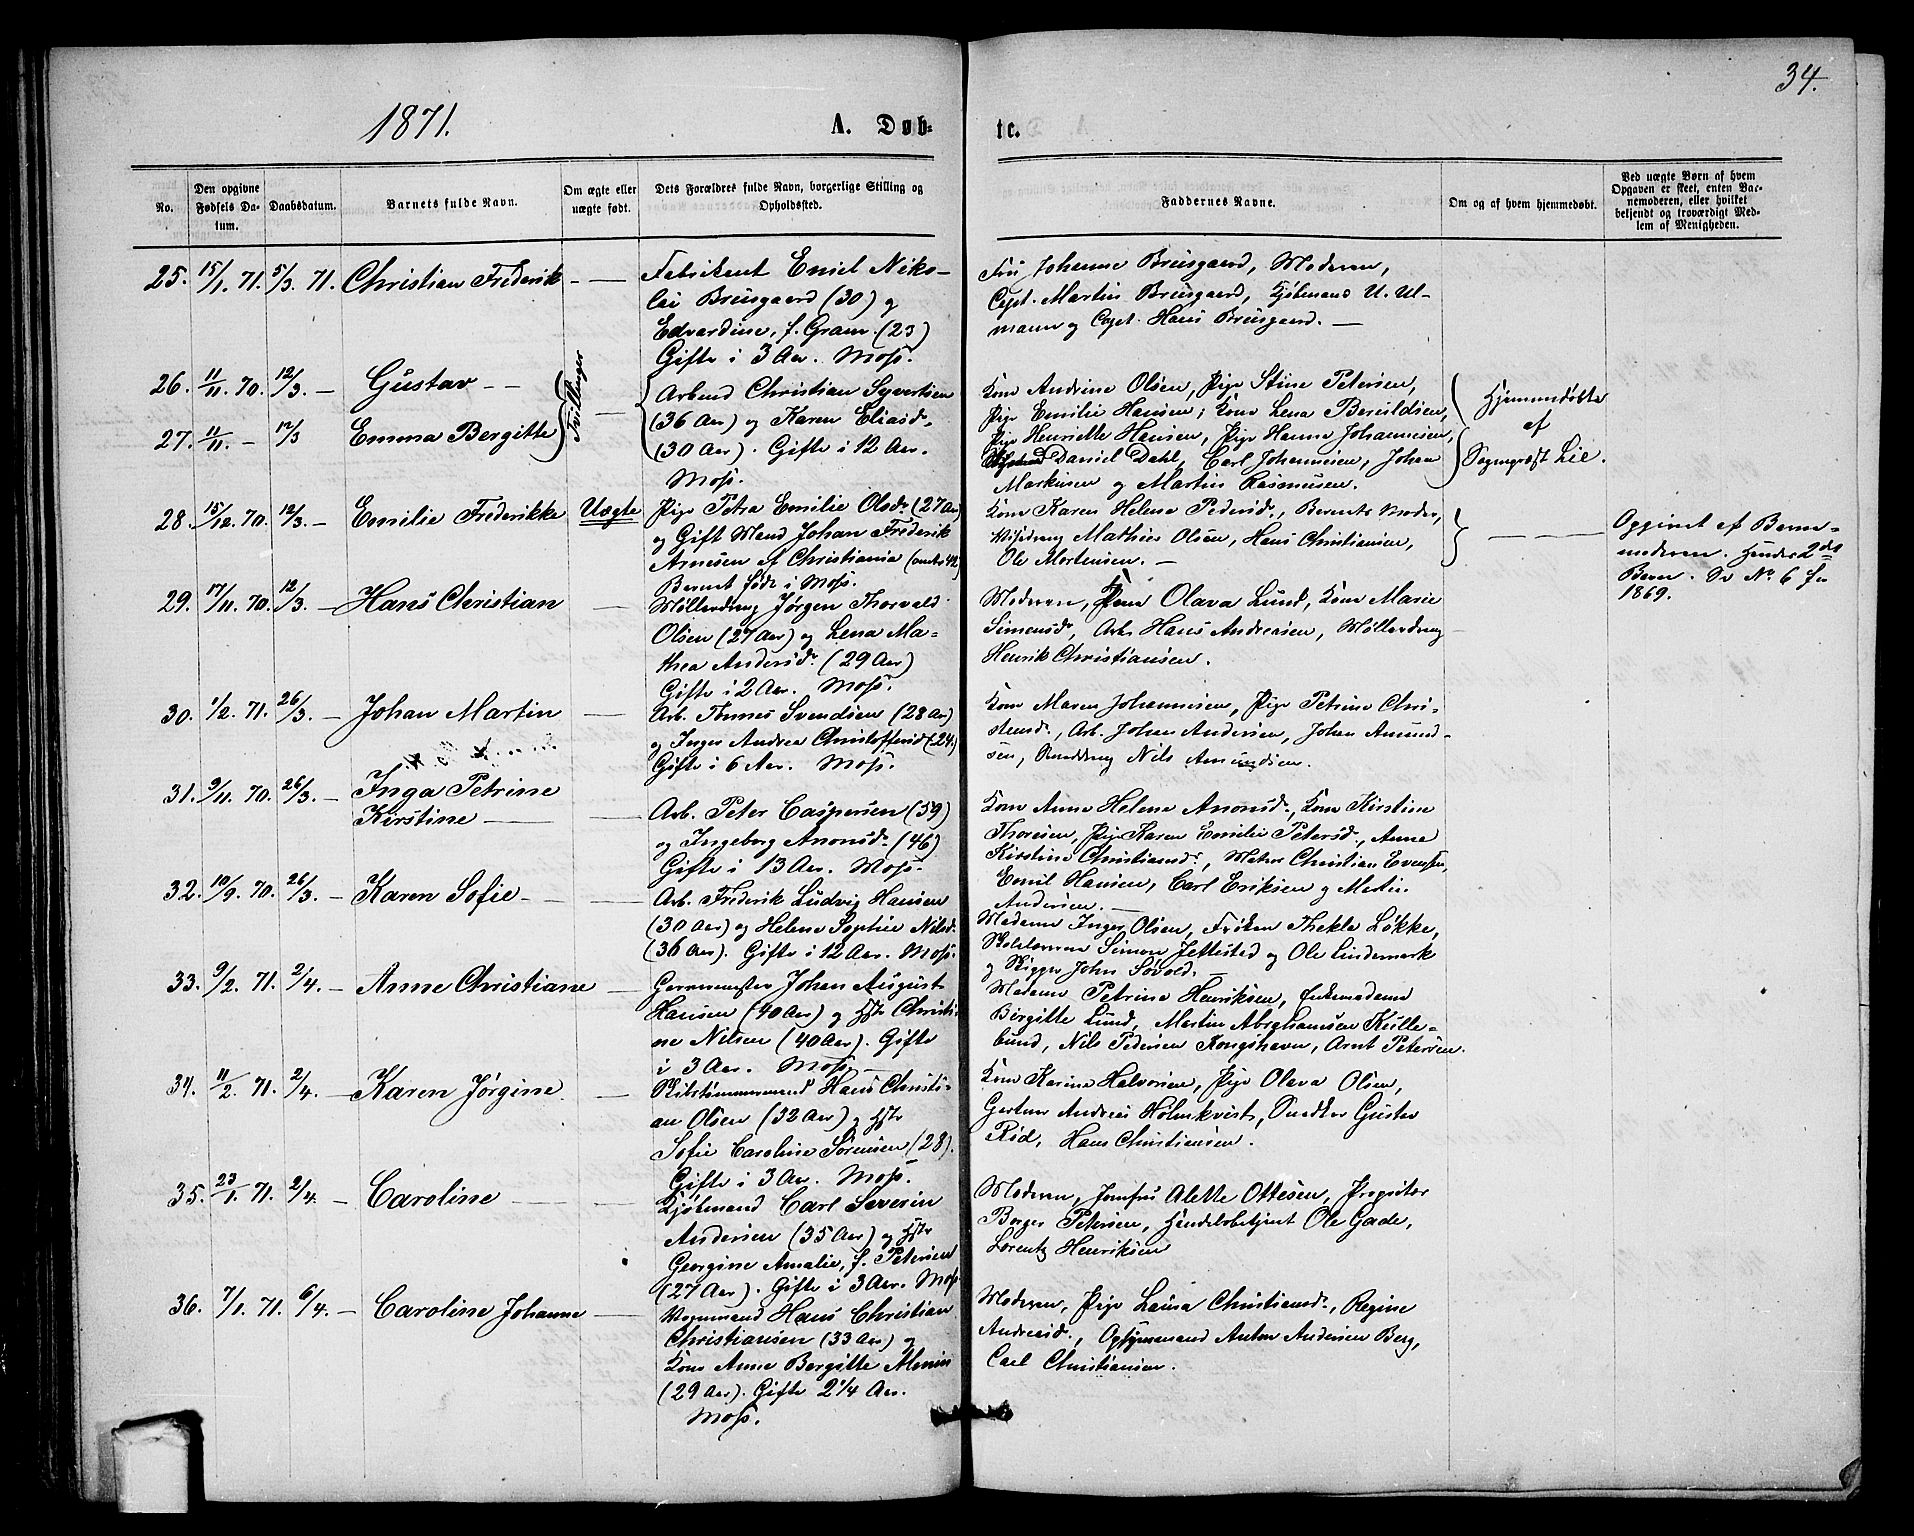 34.
1871.
A. Døb-
te.
No.
Den opgivne Fødsels Da-tum.
Daabsdatum.
Barnets fulde Navn.
Om ægte eller uægte født.
Dets Forældres fulde Navn, borgerlige Stilling og Opholdssted.
Faddernes Navne.
Om og af hvem hjemmedøbt.
Ved uægte Børn af hvem Opgaven er skeet, enten Bar-nemoderen, eller hvilket bekjendt og troværdigt Med-lem af Menigheden.
25. 15/1. 71. 5/3. 71. Christian Frederik - —
Fabrikant Emil Niko-
lai Bruusgaard (30) og
Edvardine, f. Gram. (23)
Gifte i 3 Aar. Moss.
Fru Johanne Bruusgaard, Moderen,
Capt. Martin Bruusgaard, Kjøbmand U. Ul-
mann og Capt. Hans Bruusgaard. —
26. 11/11. 70. 12/3. — Gustav - -
27. 11/11. - 12/3 Emma Bergitte
Tvillinger
Arbmd Christian Syvertsen
(36 Aar) og Karen Eliasd.
(30 Aar). Gifte i 12 Aar.
Moss.
Kone Andrine Olsen, Pige Stine Petersen,
Pige Emilie Hansen, Kone Lena Beruldsen,
Pige Henriette Hansen, Pige Hanna Johannesen,
Daniel Dahl, Carl Johannesen, Johan
Markusen og Martin Rasmusen.
Hjemmedøbte
af
Sogneprest Lie.
28. 15/12. 70. 12/3. — Emilie Frederikke Uægte
Pige Petra Emilie Olsdr (27 Aar)
og Gift Mand Johan Frederik
Arnesen af Christiania (omtr 42)
Barnet født i Moss.
Kone Karen Helene Pedersdr., Barnets Moder,
Mathias Olsen, Hans Christiansen,
Ole Mortensen. —
Opgivet af Barne-
moderen. Hendes 2det
Barn. Se No. 6 for
1869.
29. 17/11. 70. 12/3. — Hans Christian —
Møllerdreng Jørgen Thorvald
Olsen (27 Aar) og Lena Ma-
thea Andersdr (29 Aar)
Gifte i 2 Aar. Moss.
Moderen, Olava Lund, Kone Marie
Simensdr, Arb. Hans Andreasen, Møllerdreng
Henrik Christiansen.
30. 1/2. 71. 26/3. — Johan Martin —
Arb. Svendsen (28 Aar)
og Inger Andrea Christoffersd (24)
Gifte i 6 Aar. Moss.
Kone Maren Johannesen, Pige Petrine Chri-
stensdr, Arb. Johan Andersen, Johan Amund-
sen, Nils Amundsen.
31. 9/11. 70. 26/3. — Inga Petrine
Kirstine —
Arb. Peter Caspersen (59)
og Ingeborg Amonsdr. (46)
Gifte i 13 Aar. Moss.
Kone Anne Helene Amonsdr., Kone Kirstine
Thoresen, Pige Karen Emilie Petersd., Anne
Kirstine Christiansdr., Matros Christian Evensen,
Emil Hansen, Carl Eriksen og Martin
Andersen. —
32. 10/9. 70. 26/3. — Karen Sofie - —
Arb. Frederik Ludvig Hansen
(30 Aar) og Helene Sophie Nilsd.
(36 Aar). Gifte i 12 Aar. Moss.
Madame Inger Olsen, Frøken Thekla Løkke,
Simon Jettestad og Ole Lindemark
og Rigger John Solvold. —
33. 9/2. 71. 2/4. — Anne Christiane —
Garvermester Johan August
Hansen (40 Aar) og Hstr Christi-
ne Nilsen (40 Aar). Gifte
i 3 Aar. Moss.
Madame Petrine Henriksen, Enkemadame
Birgitte Lund, Martin Abrahamsen Kulle-
bund, Nils Pedersen Kongshavn, Arnt Petersen.
34. 11/2. 71. 2/4. — Karen Jørgine. —
Skibstømmermand Hans Christi-
an Olsen (32 Aar) og Hstr
Sofie Caroline Sørensen (28).
Gifte i 3 Aar. Moss.
Kone Karine Halvorsen, Pige Olava Olsen,
Gartner Andreas Holmkvist, Snedker Gustav
Rød, Hans Christiansen.
35. 23/1. 71. 2/4. — Caroline —
Kjøbmand Carl Severin
Andersen (35 Aar) og Hstr
Georgine Amalie, f. Petersen
(27 Aar). Gifte i 3 Aar. Moss
Moderen, Jomfru Alette Ottesen, Proprietær
Borger Petersen, Handelsbetjent Ole Gade,
Lorentz Henriksen
36. 7/1. 71. 6/4. — Caroline Johanne —
Vognmand Hans Christian
Christiansen (33 Aar) og
Kone Anne Bergitte
(29 Aar). Gifte 2 1/4 Aar.
Moss.
Moderen, Pige Lauisa Christiansdr., Regine
Andreasdr., Opsynsmand Anton Andersen Berg,
Carl Christiansen.